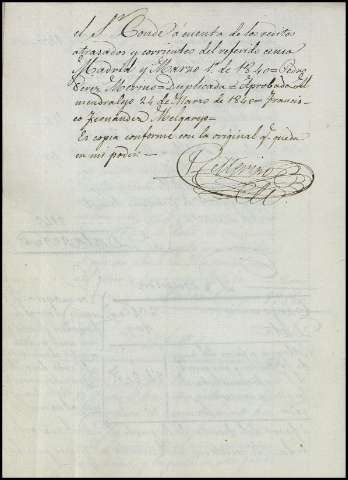 el S.r Conde á cuenta de los reditos
atrasados y corrientes del referido censo
Madrid y Marzo 1.º de 1840 = Pedro
Perez Merino = Duplicada = Aprobada Al
mendralejo 24 de Marzo de 1840 = Francis
co Fernandez Melgarejo =
Es copia conforme con la original q.e queda
en mi poder. —